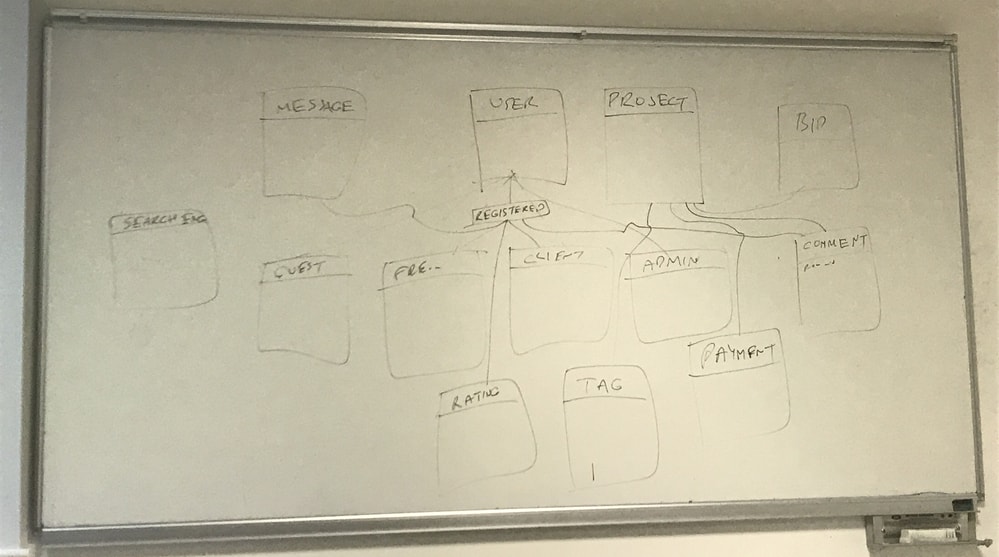 MESSAGE
USER
PROJECT
BID
SEARCH ENG
REGISTERED
GUEST
FRE...
CLIENT
ADMIN
COMMENT
RATING
TAG
PAYMENT